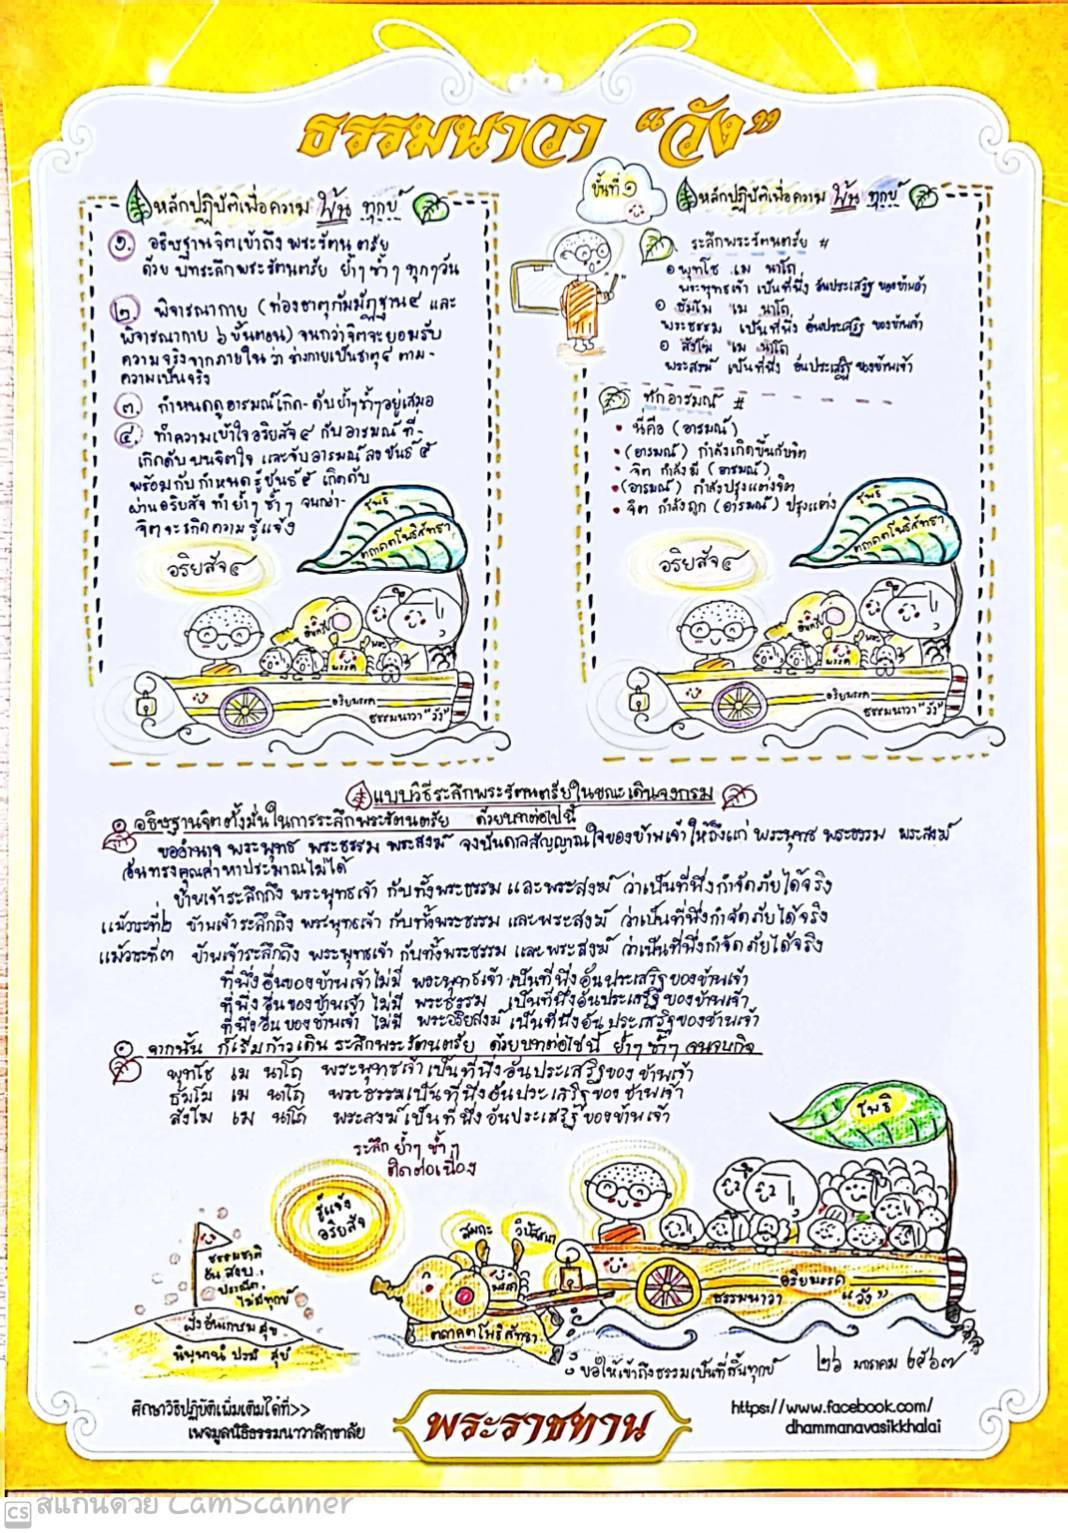 ธรรมนาวา “วัง”
หลักปฏิบัติเพื่อความ พ้น ทุกข์
๑. อธิษฐานจิตเข้าถึง พระรัตนตรัย
ด้วย บทระลึกพระรัตนตรัย ย้ำๆ ซ้ำๆ ทุกๆ วัน
๒. พิจารณากาย (ท่องธาตุกัมมัฏฐาน ๔ และ
พิจารณากาย ๖ ขั้นตอน) จนกว่าจิตจะยอมรับ
ความจริงจากภายในว่า ร่างกายเป็นธาตุ ๔ ตาม-
ความเป็นจริง
๓. กำหนดดูอารมณ์เกิด-ดับย้ำๆซ้ำๆอยู่เสมอ
๔. ทำความเข้าใจอริยสัจ ๔ กับอารมณ์ ที่-
เกิดดับ บนจิตใจ และจับอารมณ์ ลงขันธ์ ๕
พร้อมกับกำหนดรู้ขันธ์ ๕ เกิดดับ
ผ่านอริยสัจ ทำย้ำๆ ซ้ำๆ จนกว่า-
จิตจะเกิดความรู้แจ้ง
โพธิ
ตถาคตโพธิสัทธา
อริยสัจ ๔
อินทรีย์
พระ
พรรค
อริยมรรค
ธรรมนาวา "วัง"
ขั้นที่ ๑
หลักปฏิบัติเพื่อความ พ้น ทุกข์
ระลึกพระรัตนตรัย #
๑ พุทโธ เม นาโถ
พระพุทธเจ้า เป็นที่พึ่ง อันประเสริฐ ของข้าพเจ้า
๑ ธัมโม เม นาโถ
พระธรรม เป็นที่พึ่ง อันประเสริฐ ของข้าพเจ้า
๑ สังโฆ เม นาโถ
พระสงฆ์ เป็นที่พึ่ง อันประเสริฐ ของข้าพเจ้า
ทักอารมณ์ #
• นี่คือ (อารมณ์)
• (อารมณ์) กำลังเกิดขึ้นกับจิต
• จิต กำลังมี (อารมณ์)
• (อารมณ์) กำลังปรุงแต่งจิต
• จิต กำลังถูก (อารมณ์) ปรุงแต่ง
โพธิ
ตถาคตโพธิสัทธา
อริยสัจ ๔
พระ
พรรค
อริยมรรค
ธรรมนาวา "วัง"
แบบวิธีระลึกพระรัตนตรัยในขณะเดินจงกรม
๑ อธิษฐานจิตตั้งมั่นในการระลึกพระรัตนตรัย ด้วยบทต่อไปนี้
ขออำนาจ พระพุทธ พระธรรม พระสงฆ์ จงบันดาลสัญญาณใจของข้าพเจ้า ให้ถึงแก่ พระพุทธ พระธรรม พระสงฆ์
อันทรงคุณค่าหาประมาณไม่ได้
ข้าพเจ้าระลึกถึง พระพุทธเจ้า กับทั้งพระธรรม และพระสงฆ์ ว่าเป็นที่พึ่งกำจัดภัยได้จริง
แม้วาระที่๒ ข้าพเจ้าระลึกถึง พระพุทธเจ้า กับทั้งพระธรรม และพระสงฆ์ ว่าเป็นที่พึ่งกำจัดภัยได้จริง
แม้วาระที่๓ ข้าพเจ้าระลึกถึง พระพุทธเจ้า กับทั้งพระธรรม และพระสงฆ์ ว่าเป็นที่พึ่งกำจัดภัยได้จริง
ที่พึ่งอื่นของข้าพเจ้าไม่มี พระพุทธเจ้า เป็นที่พึ่งอันประเสริฐของข้าพเจ้า
ที่พึ่งอื่นของข้าพเจ้า ไม่มี พระธรรม เป็นที่พึ่งอันประเสริฐของข้าพเจ้า
ที่พึ่งอื่นของข้าพเจ้า ไม่มี พระอริยสงฆ์ เป็นที่พึ่งอันประเสริฐของข้าพเจ้า
๑ จากนั้น ก็เริ่มก้าวเดิน ระลึกพระรัตนตรัย ด้วยบทต่อไปนี้ ย้ำๆ ซ้ำๆ จนจบกิจ
พุทโธ เม นาโถ พระพุทธเจ้า เป็นที่พึ่งอันประเสริฐของ ข้าพเจ้า
ธัมโม เม นาโถ พระธรรมเป็นที่พึ่งอันประเสริฐของ ข้าพเจ้า
สังโฆ เม นาโถ พระสงฆ์เป็นที่พึ่งอันประเสริฐของข้าพเจ้า
ระลึก ย้ำๆ ซ้ำๆ
ติดต่อเนื่อง
โพธิ
รู้แจ้ง
อริยสัจ
สมถะ
วิปัสสนา
ธรรมชาติ
อันสงบ,
ประณีต,
ไม่มีทุกข์
ฝั่งอันเกษม สุข
นิพพานํ ปรมํ สุขํ
ตถาคตโพธิสัทธา
อริยมรรค
ธรรมนาวา "วัง"
ขอให้เข้าถึงธรรมเป็นที่สิ้นทุกข์
๒๖ มกราคม ๒๕๖๗
ศึกษาวิธีปฏิบัติเพิ่มเติมได้ที่>>
เพจมูลนิธิธรรมนาวาสิกขาลัย
พระราชทาน
https://www.facebook.com/
dhammanavasikkhalai
CS สแกนด้วย CamScanner